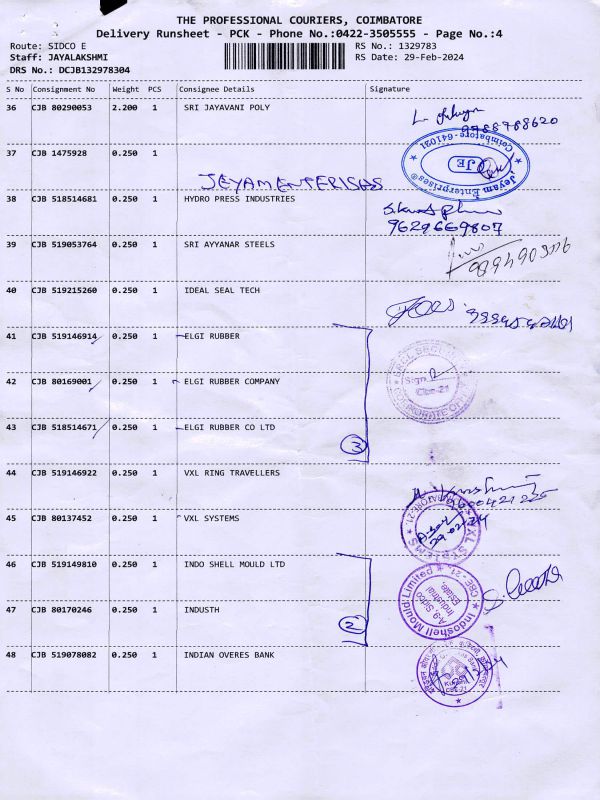 THE PROFESSIONAL COURIERS, COIMBATORE
Delivery Runsheet - PCK - Phone No.:0422-3505555 - Page No.:4
Route: SIDCO E RS No.: 1329783
Staff: JAYALAKSHMI RS Date: 29-Feb-2024
DRS No.: DCJB132978304
S No Consignment No Weight PCS Consignee Details Signature
36 CJB 80290053 2.200 1 SRI JAYAVANI POLY
9788788620
37 CJB 1475928 0.250 1
Jeyam Enterprises® Coimbatore-641021
JE
JEYAM ENTERISES
38 CJB 518514681 0.250 1 HYDRO PRESS INDUSTRIES
9629669807
39 CJB 519053764 0.250 1 SRI AYYANAR STEELS
40 CJB 519215260 0.250 1 IDEAL SEAL TECH
41 CJB 519146914 0.250 1 ELGI RUBBER
42 CJB 80169001 0.250 1 ELGI RUBBER COMPANY
Sign
Cbe-21
43 CJB 518514671 0.250 1 ELGI RUBBER CO LTD
3
44 CJB 519146922 0.250 1 VXL RING TRAVELLERS
45 CJB 80137452 0.250 1 VXL SYSTEMS
VXL SYSTEMS
29.02.24
46 CJB 519149810 0.250 1 INDO SHELL MOULD LTD
Indoshell Mould Limited CBE - 21
A-9, Sidco
Industrial
Estate,
47 CJB 80170246 0.250 1 INDUSTH
2
48 CJB 519078082 0.250 1 INDIAN OVERES BANK